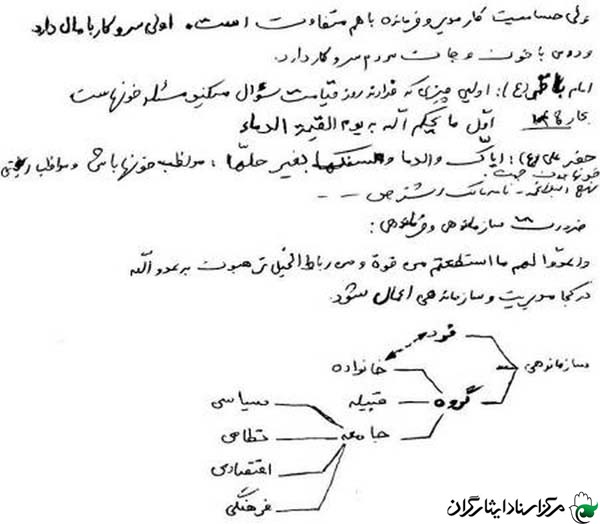 ولی حساسیت کار مدیر و فرمانده با هم متفاوت است. اولی سر و کار با مال دارد
و دومی با خون و جان مردم سر و کار دارد.
امام باقر (ع): اولین چیزی که خدا در روز قیامت سؤال میکند مسئله خونهاست
بحار اول ما یحکم الله به یوم القیمة الدماء
حضرت علی (ع): ایاک والدما و سفکها بغیر حلّها، مواظب خونها باش و مواظب
خونها بدون جهت.
نهج البلاغه - نامه مالک اشتر ص - - -
ضرورت سازماندهی و فرماندهی:
واعدّوا لهم ما استطعتم من قوة و من رباط الخیل ترهبون به عدو الله
در کجا مدیریت و سازماندهی اعمال شود.
فرد
سازماندهی
خانواده
گروه
قبیله
سیاسی
جامعه
نظامی
اقتصادی
فرهنگی
مرکز اسناد ایثارگران